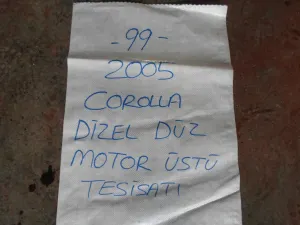 -99-
2005
COROLLA
DİZEL DÜZ
MOTOR ÜSTÜ
TESİSATI